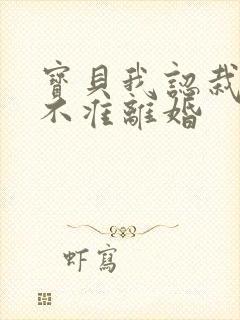 寶貝我認栽
不准離婚
虾寫